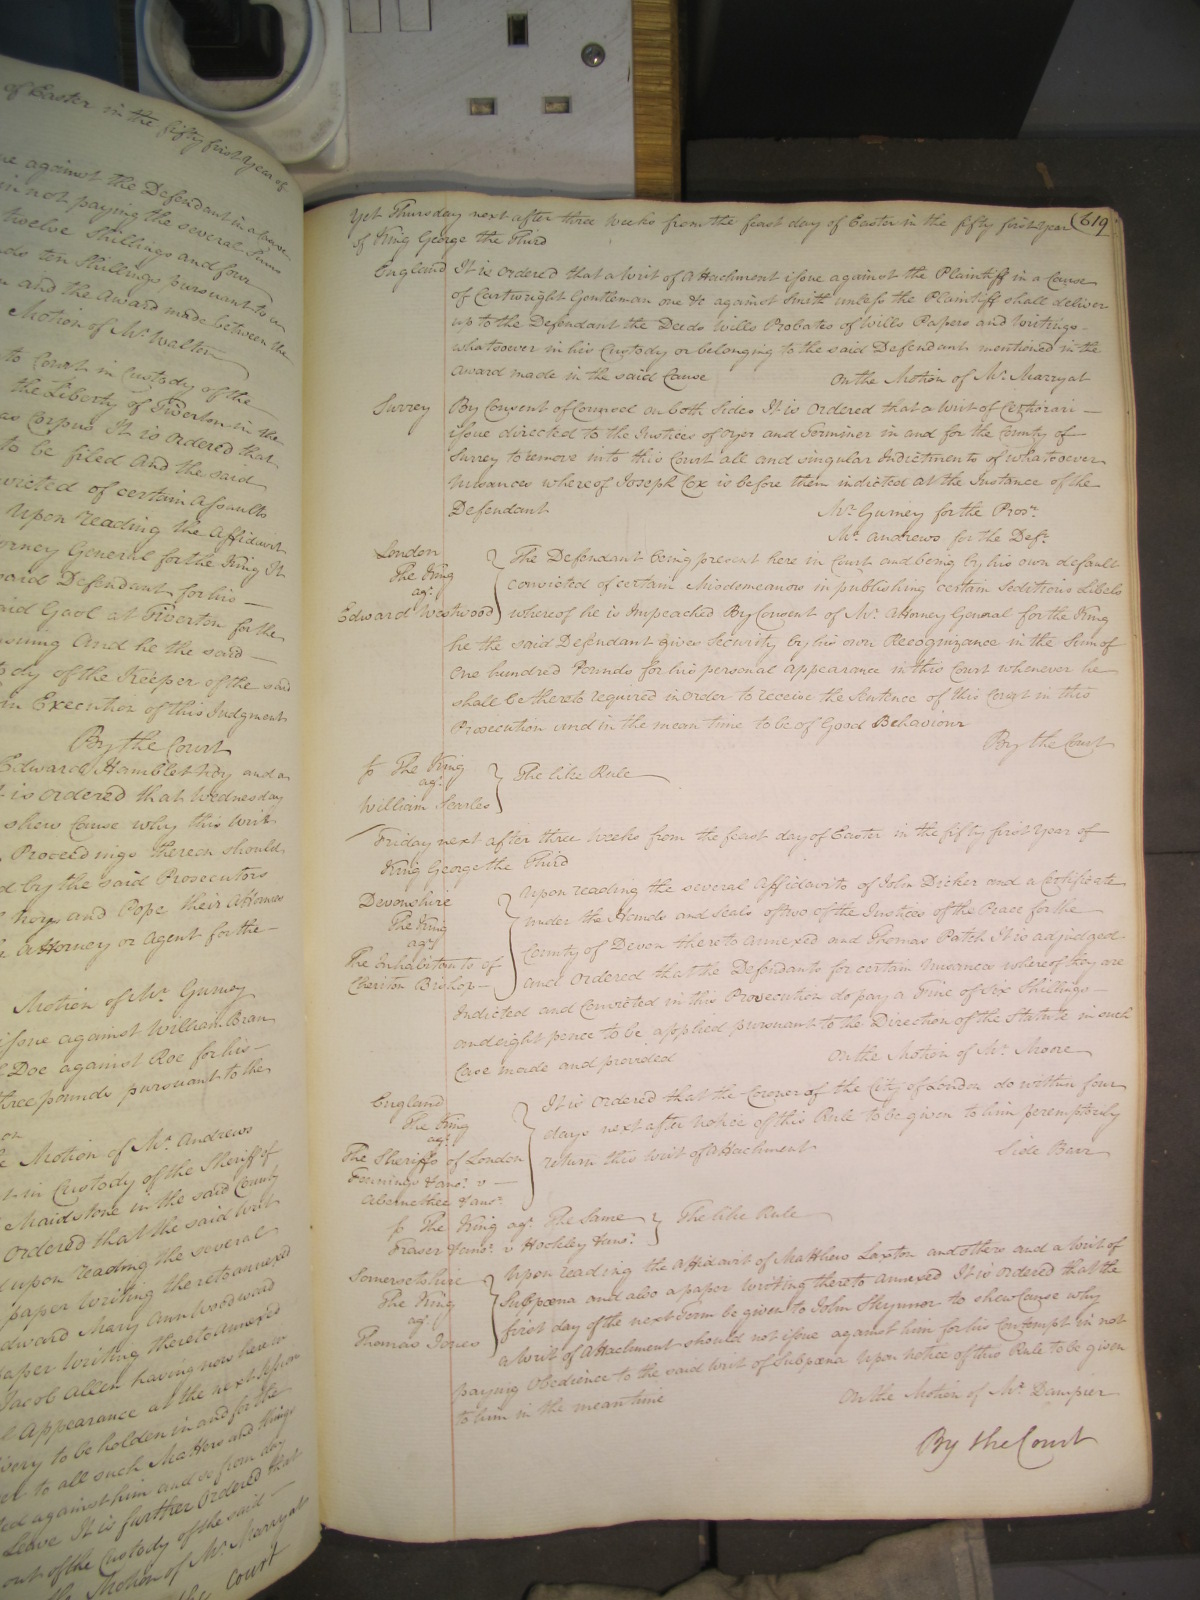 of Easter in the fifty first Year of
ue against the Defendant in a Cause
in not paying the several Sums
twelve Shillings and four
ds ten Shillings pursuant to a
and the Award made between the
Motion of Mr. Walton
to Court in Custody of the
the Liberty of Tiverton in the
as Corpus It is Ordered that
to be filed And the said
victed of certain Assaults
Upon reading the Affidavit
orney General for the King It
said Defendant for his
aid Gaol at Tiverton for the
suing And he the said
ody of the Keeper of the said
in Execution of this Judgment
By the Court
Edward Hamblet Noy and a
is Ordered that Wednesday
shew Cause why this Writ
Proceedings thereon should
d by the said Prosecutors
Noy and Pope their Attornies
Attorney or Agent for the
Motion of Mr. Gurney
issue against William Bran
Doe against Roe for his
three pounds pursuant to the
on
Motion of Mr. Andrews
in Custody of the Sheriff of
Maidstone in the said County
Ordered that the said Writ
upon reading the several
paper Writing thereto annexed
dward Mary Ann Woodward
paper Writing thereto Annexed
Jacob Allen having now here in
Appearance at the next Session
ivery to be holden in and for the
er to all such Matters and things
ed against him and so from day
Leave It is further Ordered that
out of the Custody of the said
the Motion of Mr. Marryat
the Court
619
Yet Thursday next after three Weeks from the feast day of Easter in the fifty first Year
of King George the Third
England It is Ordered that a Writ of Attachment issue against the Plaintiff in a Cause
of Cartwright Gentleman one &c against Smith unless the Plaintiff shall deliver
up to the Defendant the Deeds Wills Probates of Wills Papers and Writings
whatsoever in his Custody or belonging to the said Defendant mentioned in the
Award made in the said Cause On the Motion of Mr. Marryat
Surrey By Consent of Counsel on both Sides It is Ordered that a Writ of Certiorari
issue directed to the Justices of Oyer and Terminer in and for the County of
Surrey to remove into this Court all and singular Indictments of whatsoever
Nusances whereof Joseph Cox is before them indicted at the Instance of the
Defendant Mr. Gurney for the Prosr.
Mr. Andrews for the Deft.
London
The King
agt.
Edward Westwood
The Defendant being present here in Court and being by his own default
convicted of certain Misdemeanors in publishing certain Seditious Libels
whereof he is Impeached By Consent of Mr. Attorney General for the King
he the said Defendant gives Security by his own Recognizance in the Sum of
One hundred Pounds for his personal appearance in this Court whenever he
shall be thereto required in order to receive the Sentence of this Court in this
Prosecution and in the mean time to be of Good Behaviour
By the Court
fs The King
agt.
William Searles
The like Rule
Friday next after three Weeks from the feast day of Easter in the fifty first Year of
King George the Third
Devonshire
The King
agt.
The Inhabitants of
Cheriton Bishop
Upon reading the several Affidavits of John Dicker and a Certificate
under the Hands and Seals of two of the Justices of the Peace for the
County of Devon thereto annexed and Thomas Patch It is adjudged
and Ordered that the Defendants for certain Nusances whereof they are
Indicted and Convicted in this Prosecution do pay a Fine of Six Shillings
and eight pence to be applied pursuant to the Direction of the Statute in such
Case made and provided On the Motion of Mr. Moore
England
The King
agt.
The Sheriffs of London
Fennings & anor. v
Abernethee & anor.
It is Ordered that the Coroner of the City of London do within four
days next after Notice of this Rule to be given to him peremptorily
return this Writ of Attachment Side Barr
fs The King agt. The Same
Fraser & anor. v Hockley & anor.
The like Rule
Somersetshire
The King
agt.
Thomas Jones
Upon reading the Affidavit of Matthew Laxton and others and a Writ of
Subpœna and also a paper Writing thereto annexed It is Ordered that the
first day of the next Term be given to John Skynner to shew Cause why
a Writ of Attachment should not issue against him for his Contempt in not
paying Obedience to the said Writ of Subpœna Upon Notice of this Rule to be given
to him in the mean time On the Motion of Mr. Dampier
By the Court